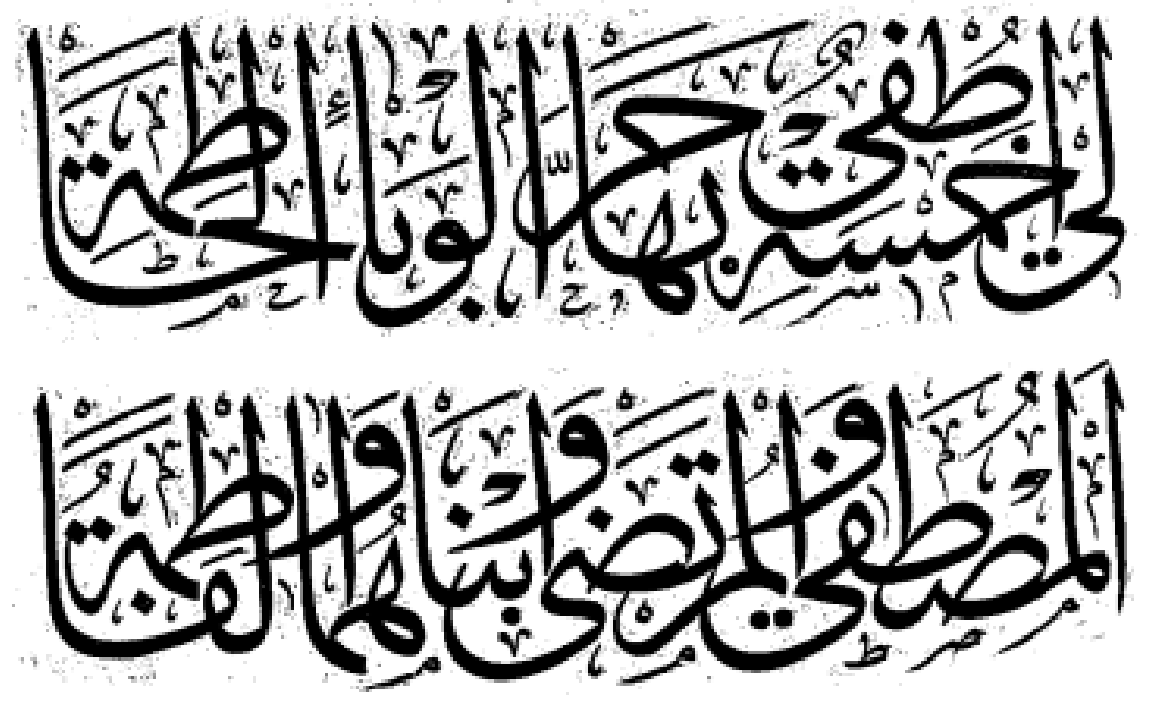 لي خمسة أطفي بها حر الوباء الحاطمة
المصطفى والمرتضى وابناهما والفاطمة